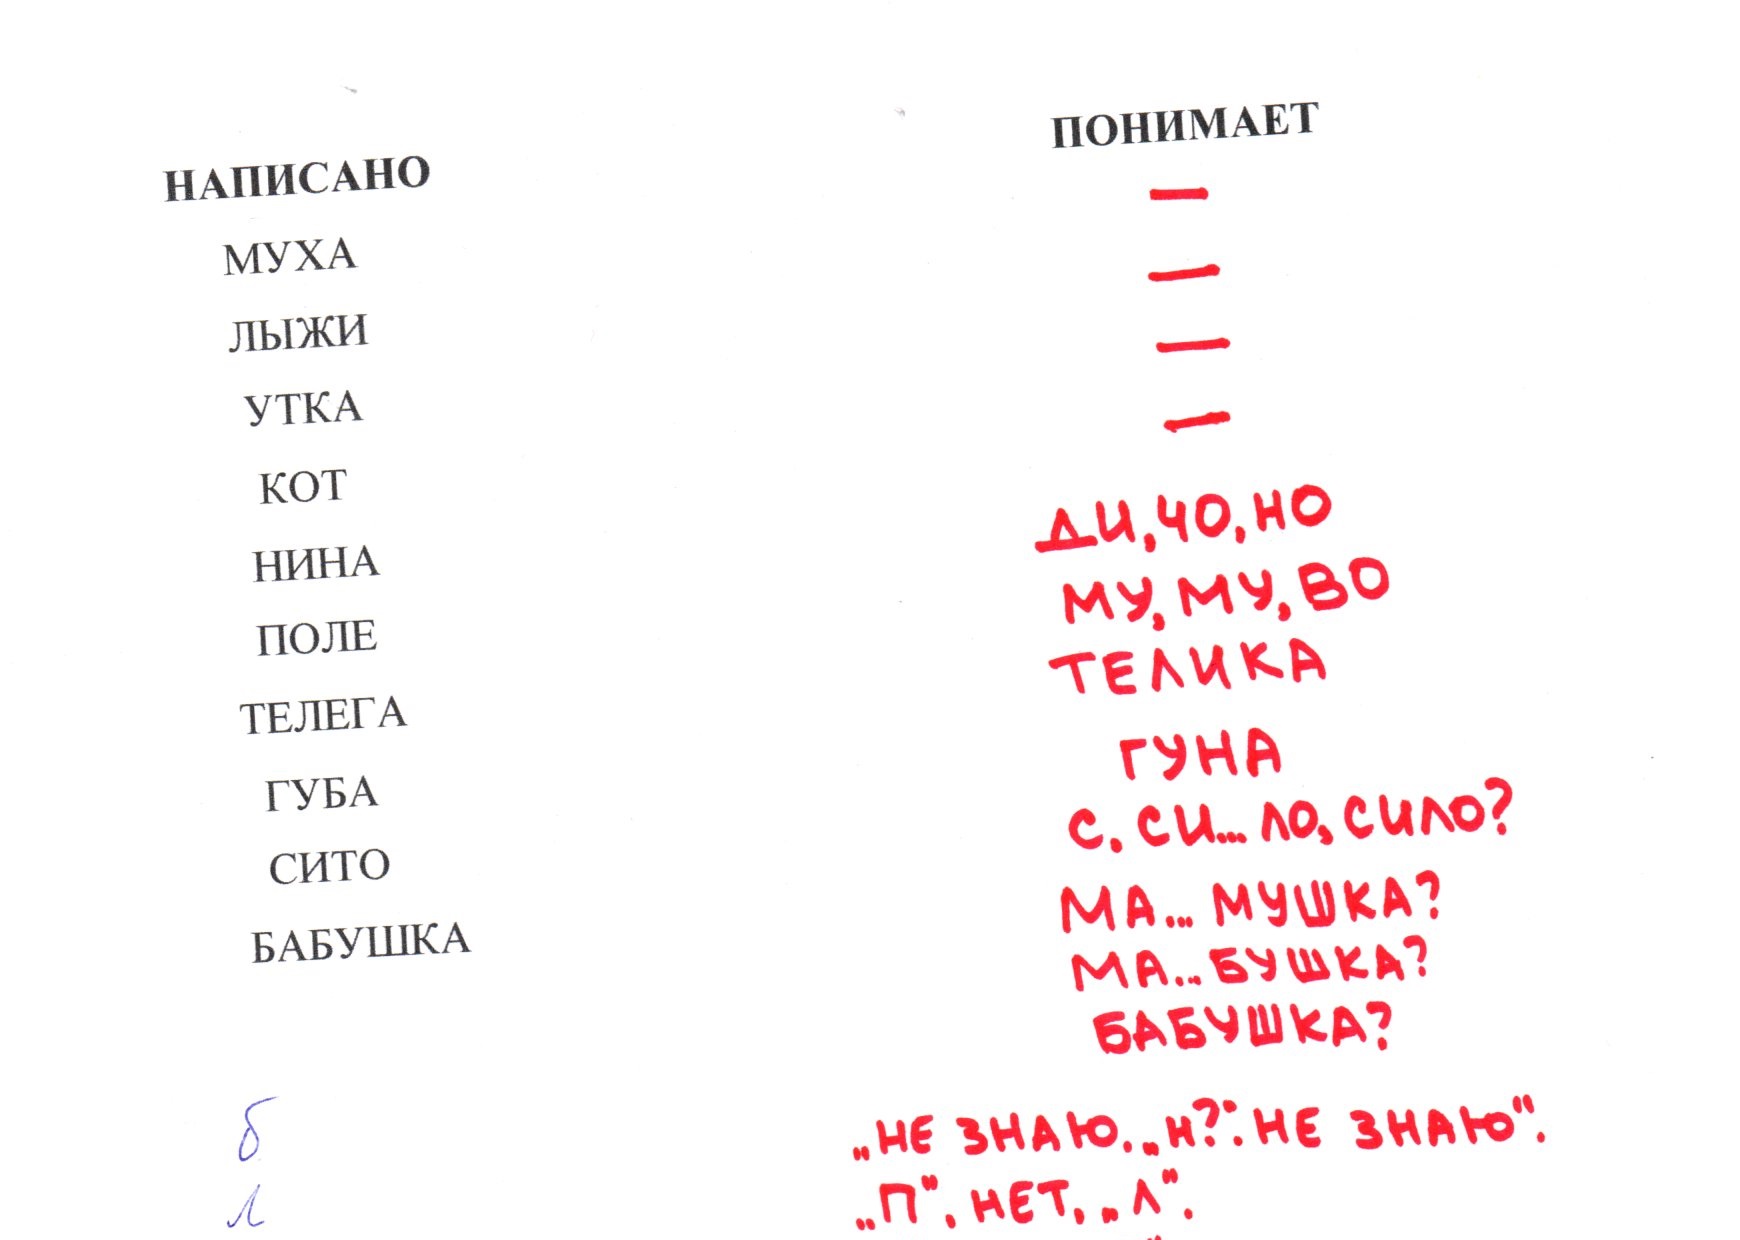 НАПИСАНО ПОНИМАЕТ
МУХА —
ЛЫЖИ —
УТКА —
КОТ —
НИНА ДИ, ЧО, НО
ПОЛЕ МУ, МУ, ВО
ТЕЛЕГА ТЕЛИКА
ГУБА ГУНА
СИТО С. СИ... ЛО, СИЛО?
БАБУШКА МА... МУШКА?
МА... БУШКА?
БАБУШКА?
б „НЕ ЗНАЮ. „Н?". НЕ ЗНАЮ".
л „П". НЕТ, „Л".